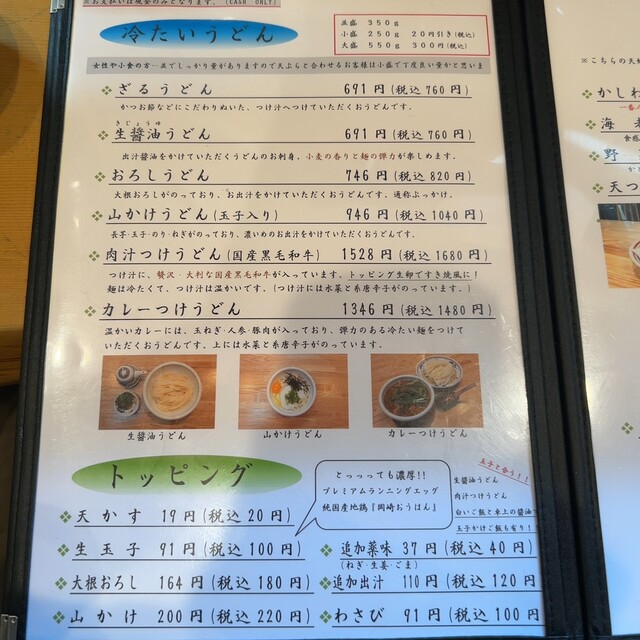 ※お支払いは現金のみとなります。(CASH ONLY)
冷たいうどん
並盛 350g
小盛 250g 20円引き(税込)
大盛 550g 300円(税込)
女性や小食の方…並でしっかり量がありますので天ぷらと合わせるお客様は小盛で丁度良い量かと思いま
ざるうどん 691円(税込760円)
かつお節などにこだわりぬいた、つけ汁へつけていただくおうどんです。
きじょうゆ
生醤油うどん 691円(税込760円)
出汁醤油をかけていただくうどんのお刺身。小麦の香りと麺の弾力が楽しめます。
おろしうどん 746円(税込820円)
大根おろしがのっており、お出汁をかけていただくおうどんです。通称ぶっかけ。
山かけうどん(玉子入り) 946円(税込1040円)
長芋・玉子・のり・ねぎがのっており、濃いめのお出汁をかけていただくおうどんです。
肉汁つけうどん(国産黒毛和牛) 1528円(税込1680円)
つけ汁に、贅沢・大判な国産黒毛和牛が入っています。トッピング生卵ですき焼風に!
麺は冷たくて、つけ汁は温かいです。(つけ汁には水菜と糸唐辛子がのっています。)
カレーつけうどん 1346円(税込1480円)
温かいカレーには、玉ねぎ・人参・豚肉が入っており、弾力のある冷たい麺をつけて
いただくおうどんです。上には水菜と糸唐辛子がのっています。
生醤油うどん 山かけうどん カレーつけうどん
トッピング
とっっっても濃厚!!
プレミアムランニングエッグ
純国産地鶏『岡崎おうはん』
玉子と合う!!
生醤油うどん
肉汁つけうどん
白いご飯と卓上の醤油で
玉子かけご飯も有り!
天かす 19円(税込20円)
生玉子 91円(税込100円)
大根おろし 164円(税込180円)
山かけ 200円(税込220円)
追加薬味 37円(税込40円)
(ねぎ・生姜・ごま)
追加出汁 110円(税込120円
わさび 91円(税込100円
※こちらの天
かしわ
一番
海老
食感
野
天つ